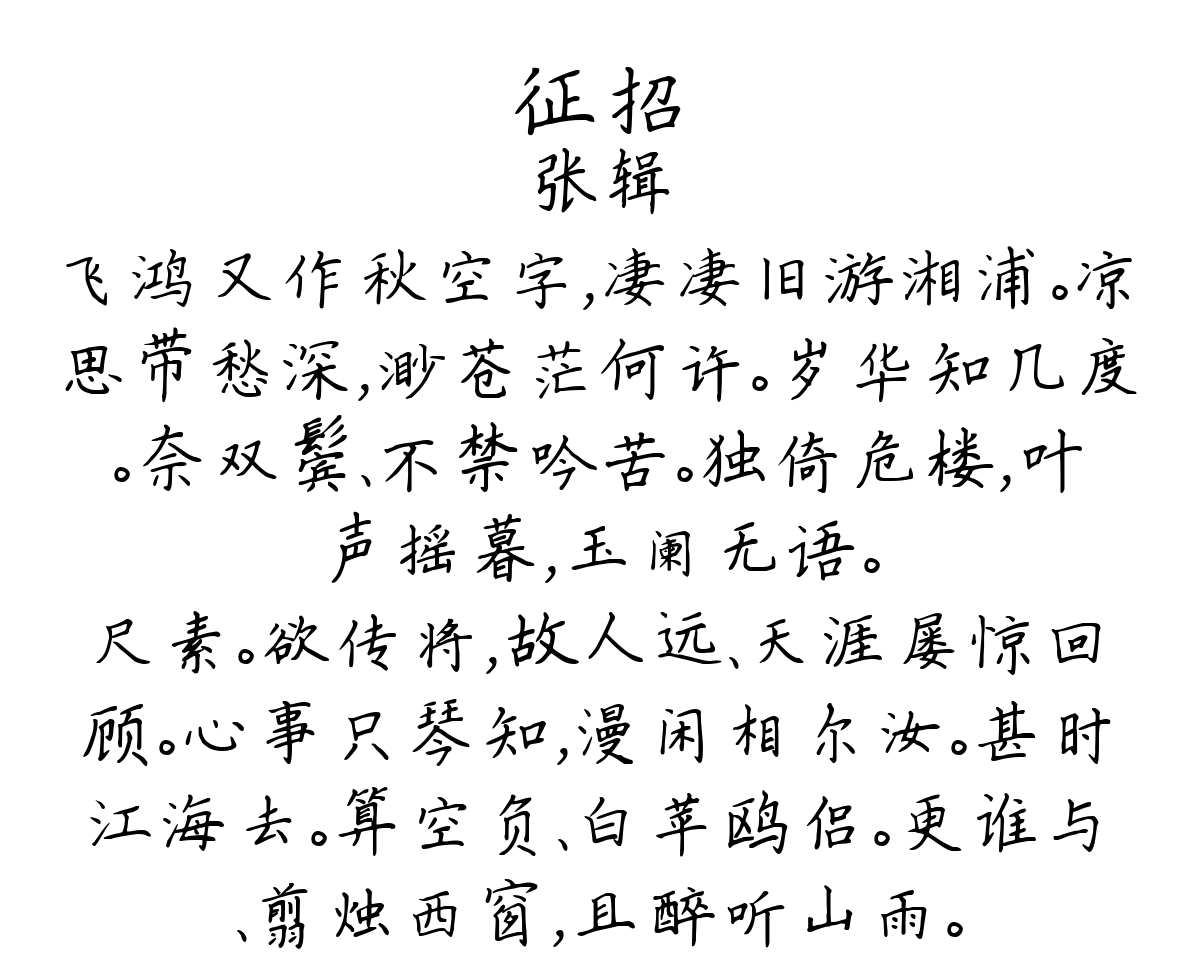 征招
张辑
飞鸿又作秋空字,凄凄旧游湘浦。凉
思带愁深,渺苍茫何许。岁华知几度
。奈双鬓、不禁吟苦。独倚危楼,叶
声摇暮,玉阑无语。
尺素。欲传将,故人远、天涯屡惊回
顾。心事只琴知,漫闲相尔汝。甚时
江海去。算空负、白苹鸥侣。更谁与
、翦烛西窗,且醉听山雨。